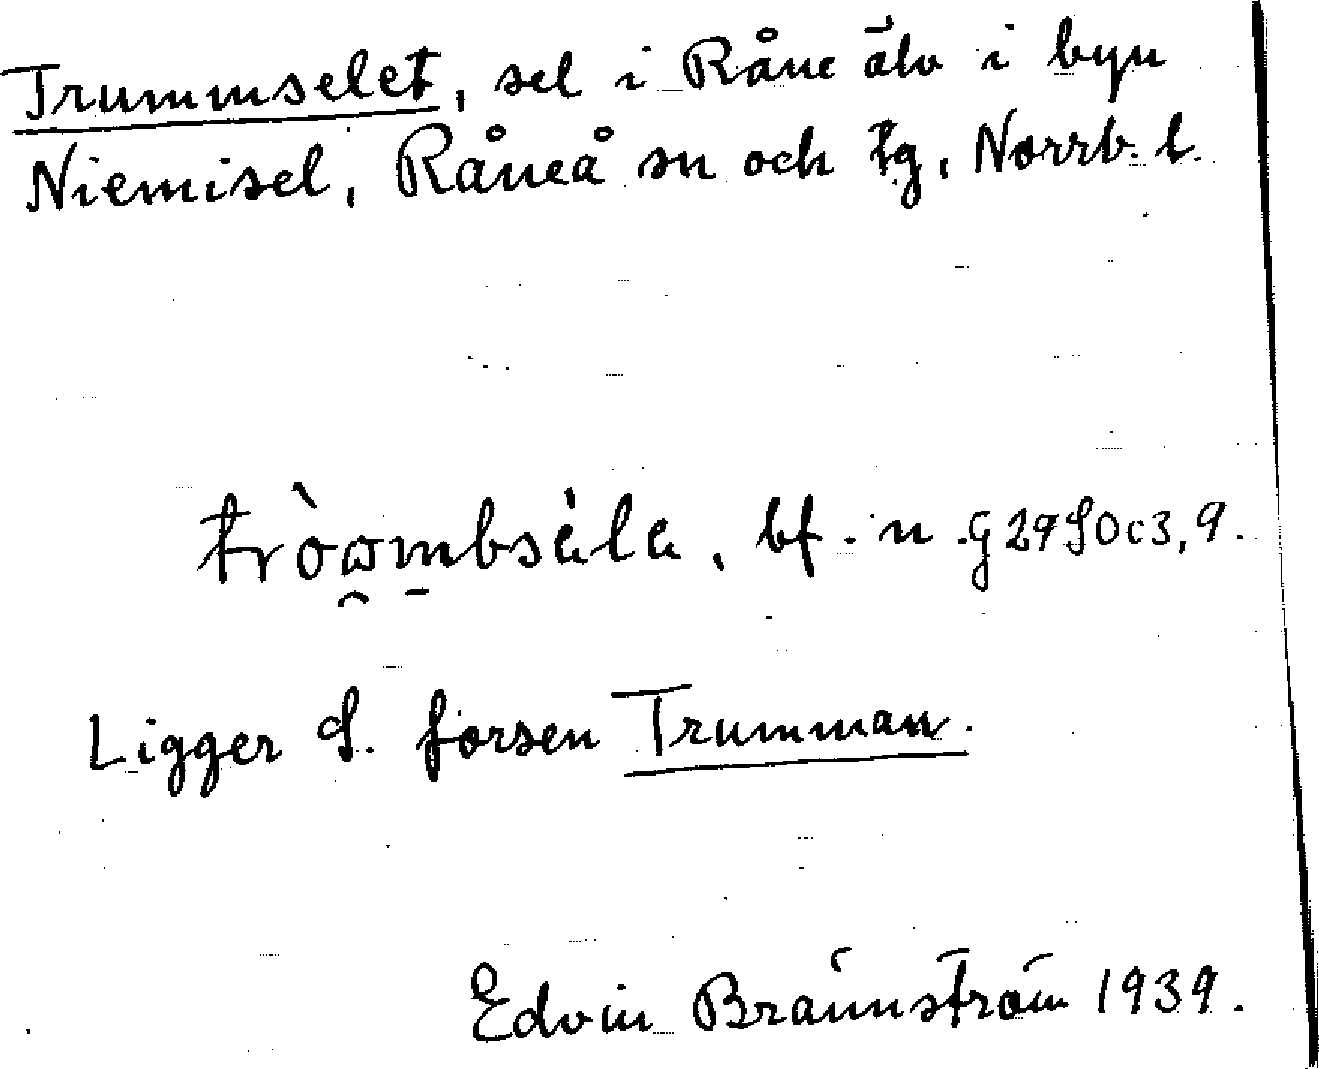 Trummselet, sel i Råne älv i byn
Niemisel, Råneå sn och tg, Norrb. l.
tròω̯m̱bsὰla, bf. n. G 29 SO c 3, 9.
Ligger S. forsen Trumman.
Edvin Brännström 1939.